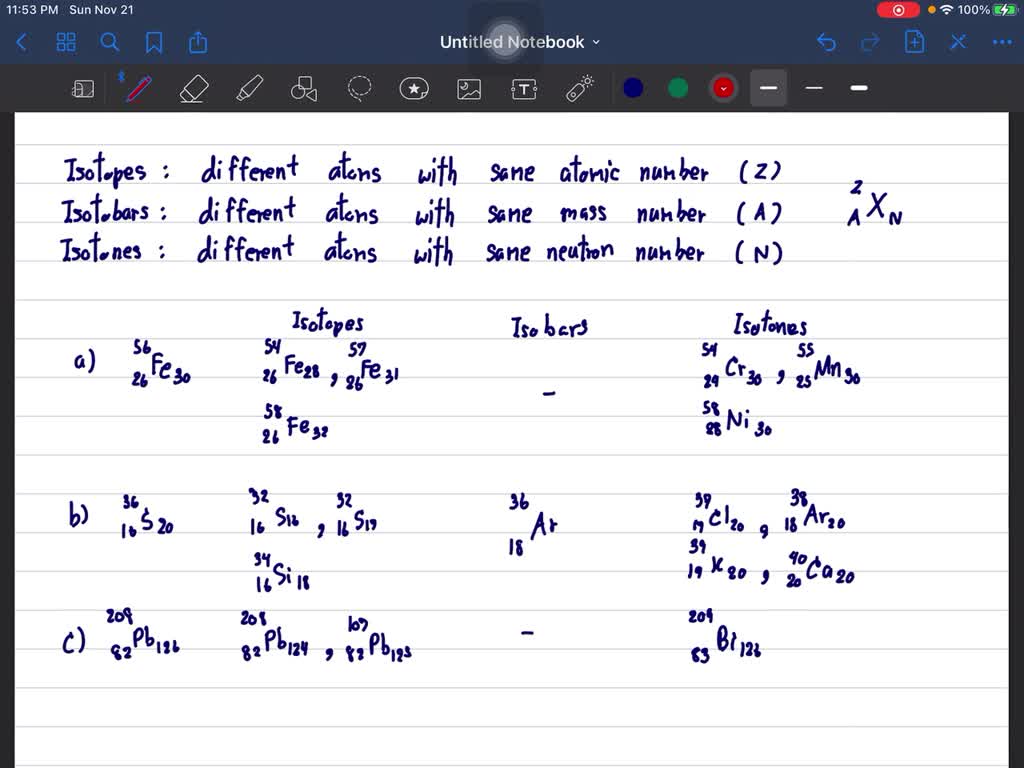 11:53 PM Sun Nov 21 100%
Untitled Notebook
Isotopes : different atoms with same atomic number (Z)
Isotobars : different atoms with same mass number (A) ᶻ_A X_N
Isotones : different atoms with same neutron number (N)
Isotopes Isobars Isotones
a) ⁵⁶₂₆Fe₃₀ ⁵⁴₂₆Fe₂₈ , ⁵⁷₂₆Fe₃₁ - ⁵⁴₂₄Cr₃₀ , ⁵⁵₂₅Mn₃₀
⁵⁸₂₆Fe₃₂ ⁵⁸₂₈Ni₃₀
b) ³⁶₁₆S₂₀ ³²₁₆S₁₆ , ³²₁₆S₁₇ ³⁶₁₈Ar ³⁷₁₇Cl₂₀ , ³⁸₁₈Ar₂₀
³⁴₁₆Si₁₈ ³⁹₁₉K₂₀ , ⁴⁰₂₀Ca₂₀
c) ²⁰⁸₈₂Pb₁₂₆ ²⁰⁸₈₂Pb₁₂₄ , ₈₂Pb₁₂₃ - ²⁰⁹₈₃Bi₁₂₆